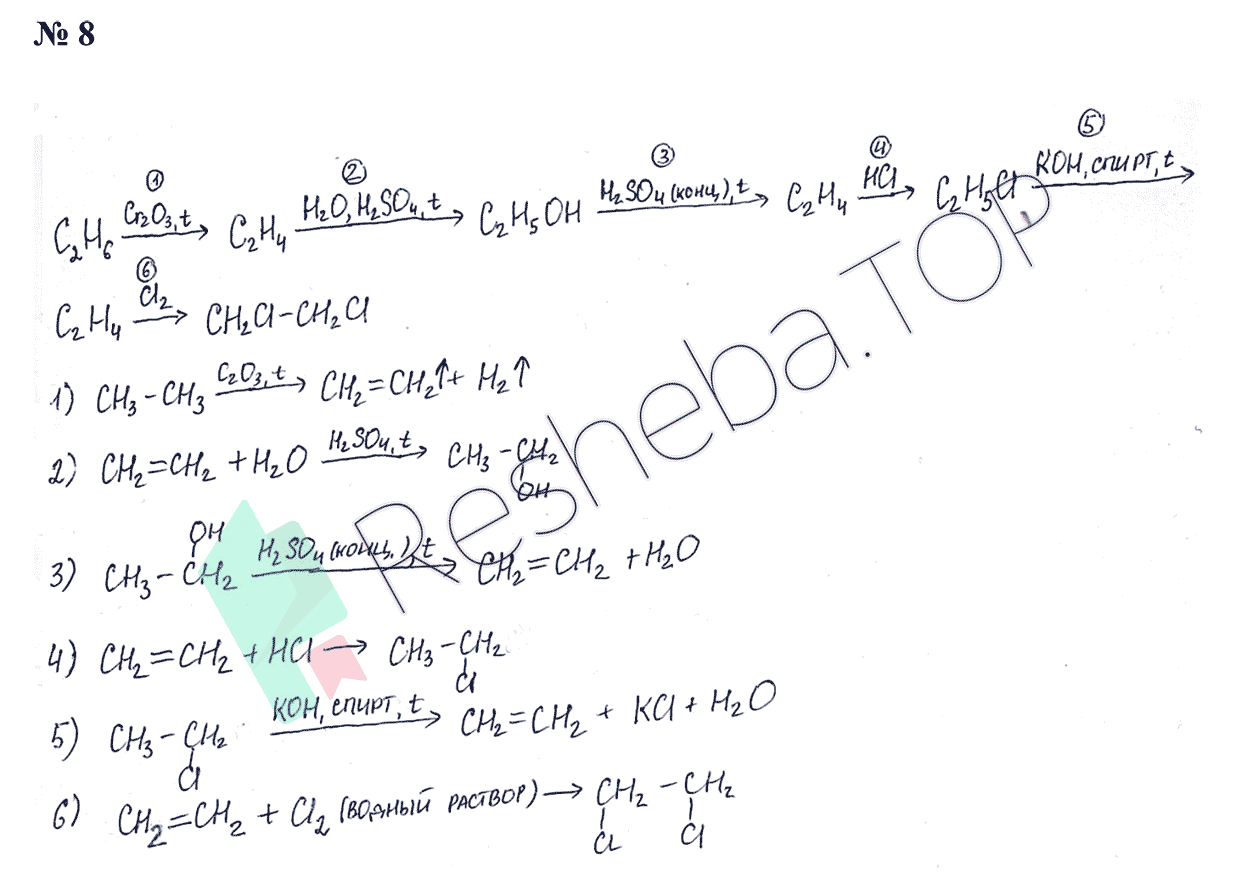 № 8
① ② ③ ④ ⑤
C₂H₆ —Cr₂O₃, t→ C₂H₄ —H₂O, H₂SO₄, t→ C₂H₅OH —H₂SO₄ (конц), t→ C₂H₄ —HCl→ C₂H₅Cl —КОН, СПИРТ, t→
⑥
C₂H₄ —Cl₂→ CH₂Cl–CH₂Cl
1) CH₃–CH₃ —C₂O₃, t→ CH₂=CH₂↑ + H₂↑
2) CH₂=CH₂ + H₂O —H₂SO₄, t→ CH₃–CH₂
OH
OH
3) CH₃–CH₂ —H₂SO₄ (конц.), t→ CH₂=CH₂ + H₂O
4) CH₂=CH₂ + HCl → CH₃–CH₂
Cl
5) CH₃–CH₂ —КОН, СПИРТ, t→ CH₂=CH₂ + KCl + H₂O
Cl
6) CH₂=CH₂ + Cl₂ (ВОДНЫЙ РАСТВОР) → CH₂–CH₂
Cl Cl
Resheba.TOP